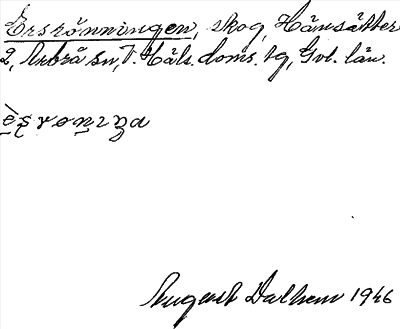 Ersrönningen, skog, Hämsätter
2, Arbrå sn, V. Häls. doms. tg, Gvl. län.
August Dalhem 1946